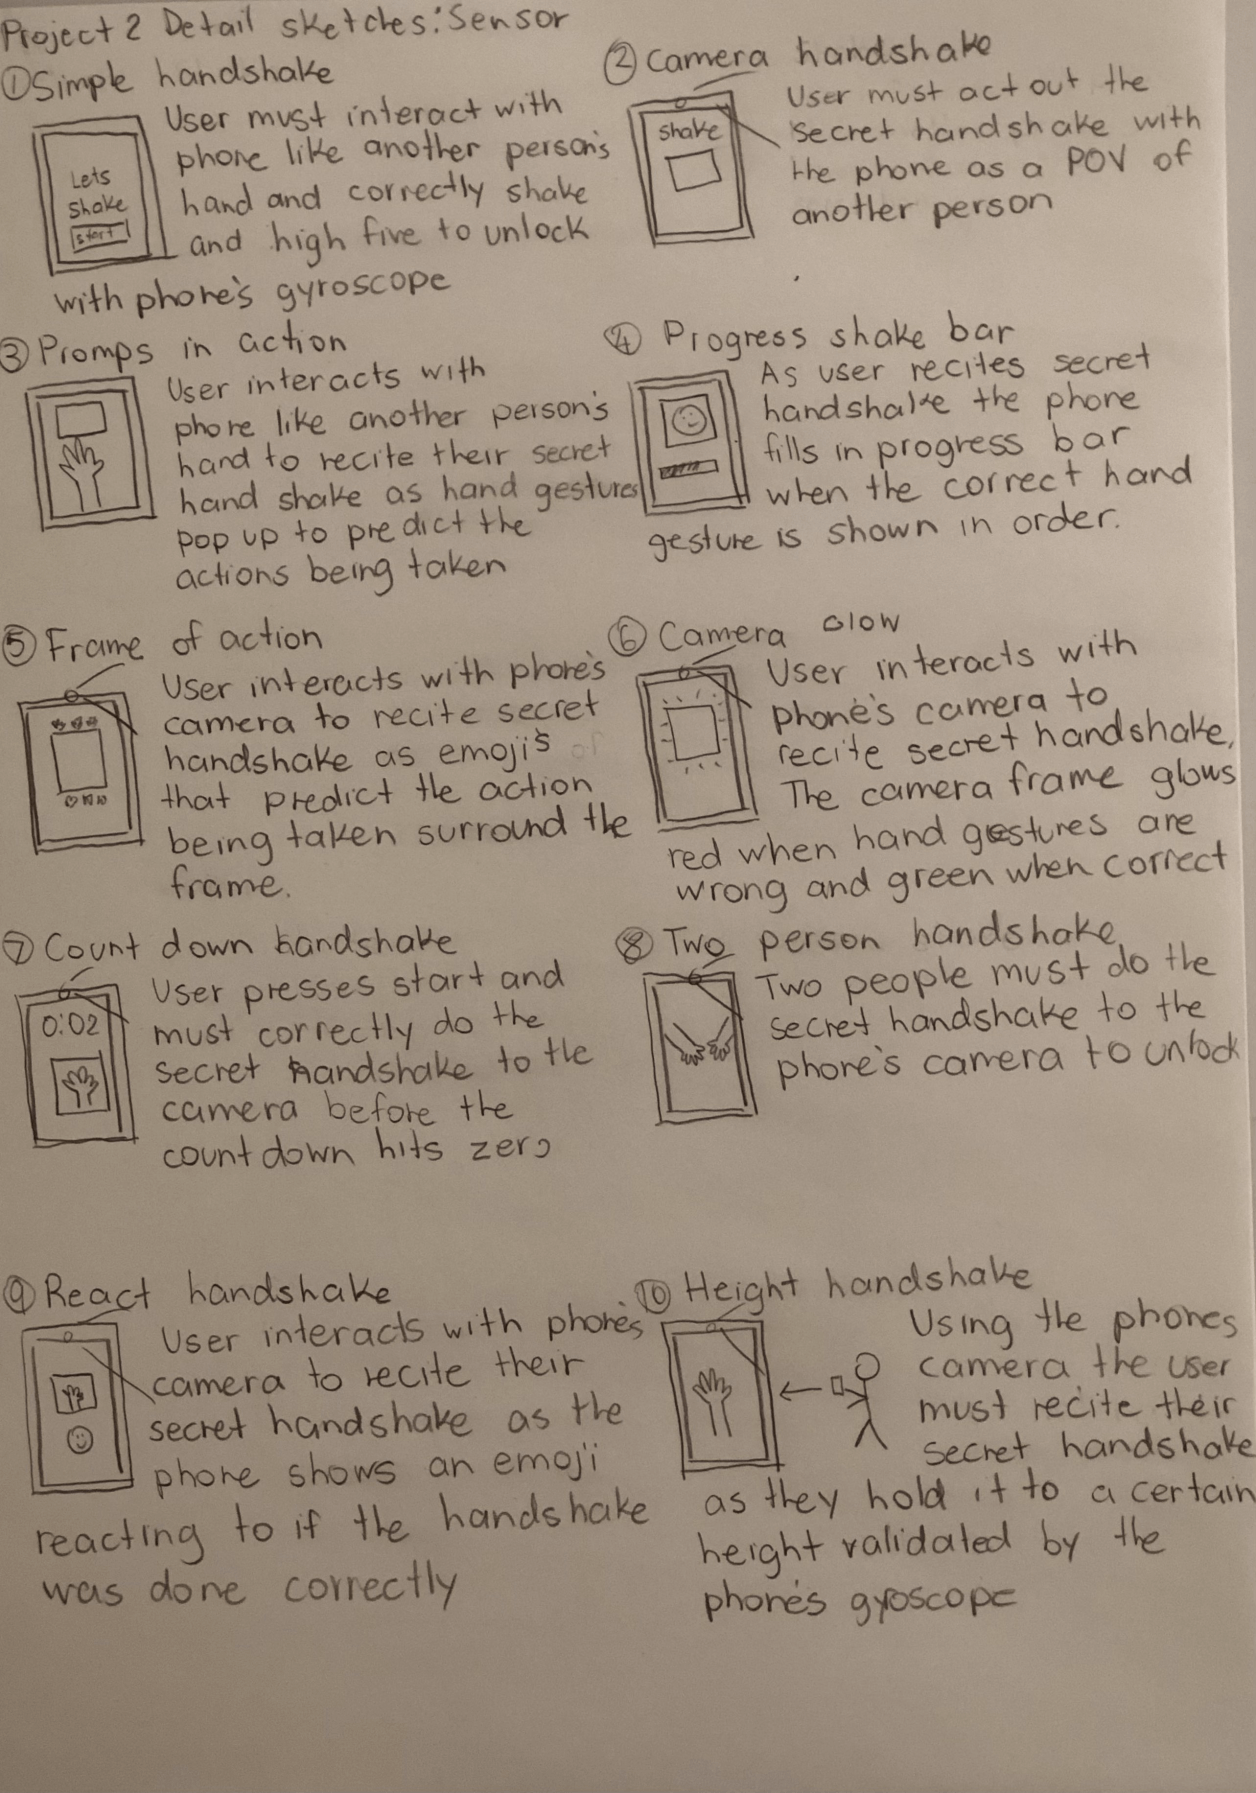 Project 2 Detail sketches: Sensor
① Simple handshake
Lets
shake
start
User must interact with
phone like another person's
hand and correctly shake
and high five to unlock
with phone's gyroscope
② Camera handshake
shake
User must act out the
secret handshake with
the phone as a POV of
another person
③ Promps in action
User interacts with
phone like another person's
hand to recite their secret
hand shake as hand gestures
pop up to predict the
actions being taken
④ Progress shake bar
As user recites secret
handshake the phone
fills in progress bar
when the correct hand
gesture is shown in order.
⑤ Frame of action
User interacts with phone's
camera to recite secret
handshake as emoji's of
that predict the action
being taken surround the
frame.
⑥ Camera Glow
User interacts with
phone's camera to
recite secret handshake.
The camera frame glows
red when hand gestures are
wrong and green when correct
⑦ Count down handshake
0:02
User presses start and
must correctly do the
secret handshake to the
camera before the
countdown hits zero
⑧ Two person handshake
Two people must do the
secret handshake to the
phone's camera to unlock
⑨ React handshake
User interacts with phone's
camera to recite their
secret handshake as the
phone shows an emoji
reacting to if the handshake
was done correctly
⑩ Height handshake
Using the phones
camera the user
must recite their
secret handshake
as they hold it to a certain
height validated by the
phone's gyroscope